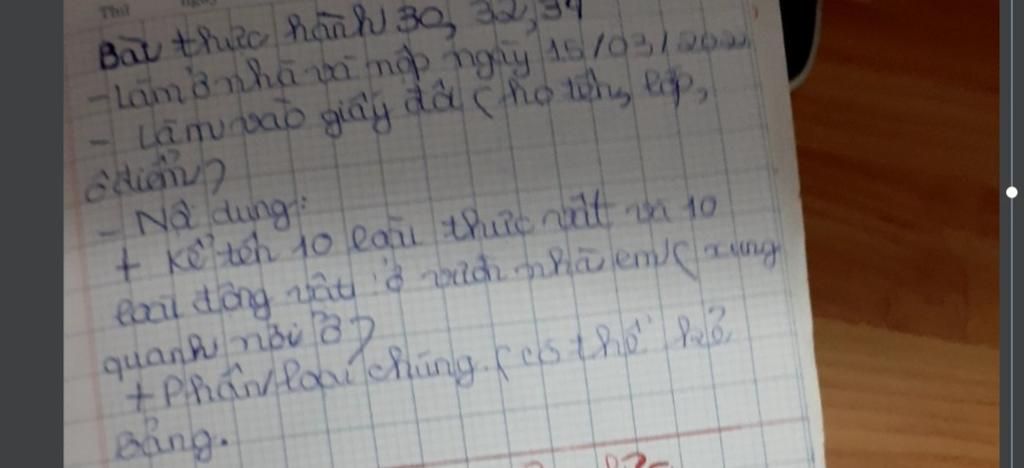 Bài thực hành 30, 32, 34
- Làm ở nhà và nộp ngày 15/03/202
- Làm vào giấy đôi (họ tên, lớp,
ô điểm)
- Nội dung:
+ Kể tên 10 loài thực vật và 10
loài động vật ở vườn nhà em (xung
quanh nơi ở)
+ Phân loại chúng. (có thể kẻ
bảng.